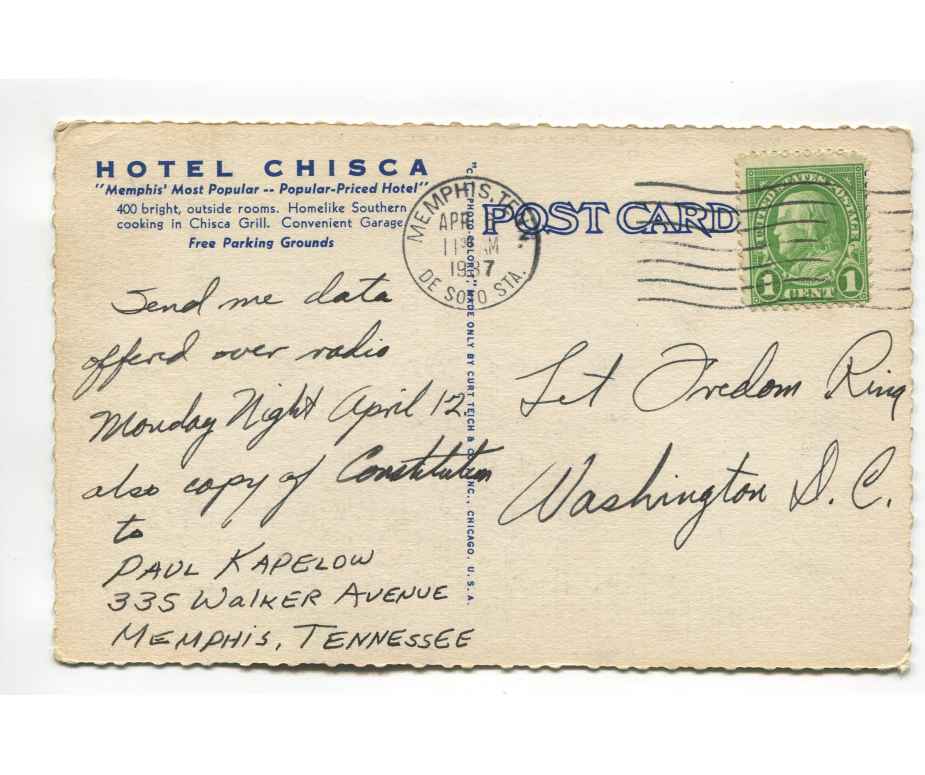 HOTEL CHISCA
"Memphis' Most Popular -- Popular-Priced Hotel"
400 bright, outside rooms. Homelike Southern
cooking in Chisca Grill. Convenient Garage.
Free Parking Grounds
MEMPHIS, TENN.
APR
11 AM
1937
DE SOTO STA.
POST CARD
UNITED STATES POSTAGE
1 CENT 1
"C.T. PHOTO-COLORIT" MADE ONLY BY CURT TEICH & CO., INC., CHICAGO, U.S.A.
Send me data
offered over radio
Monday Night April 12.
also copy of Constitution
to
PAUL KAPELOW
335 WALKER AVENUE
MEMPHIS, TENNESSEE
Let Fredom Ring
Washington D.C.